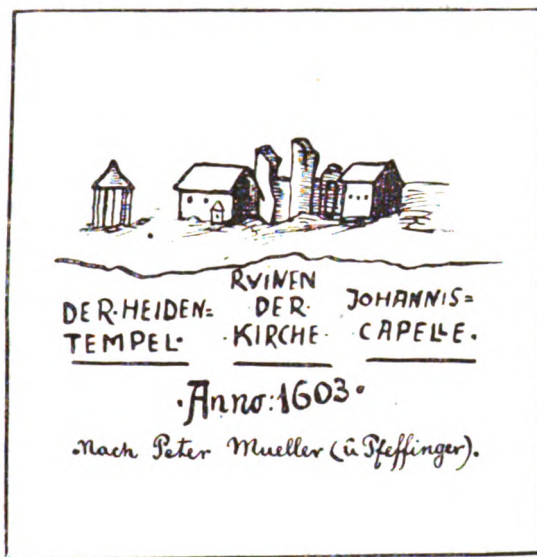 DER·HEIDEN=
TEMPEL·
RVINEN
DER·
·KIRCHE·
JOHANNIS=
CAPELLE.
·Anno:1603·
·Nach Peter Mueller (ū Pfeffinger).